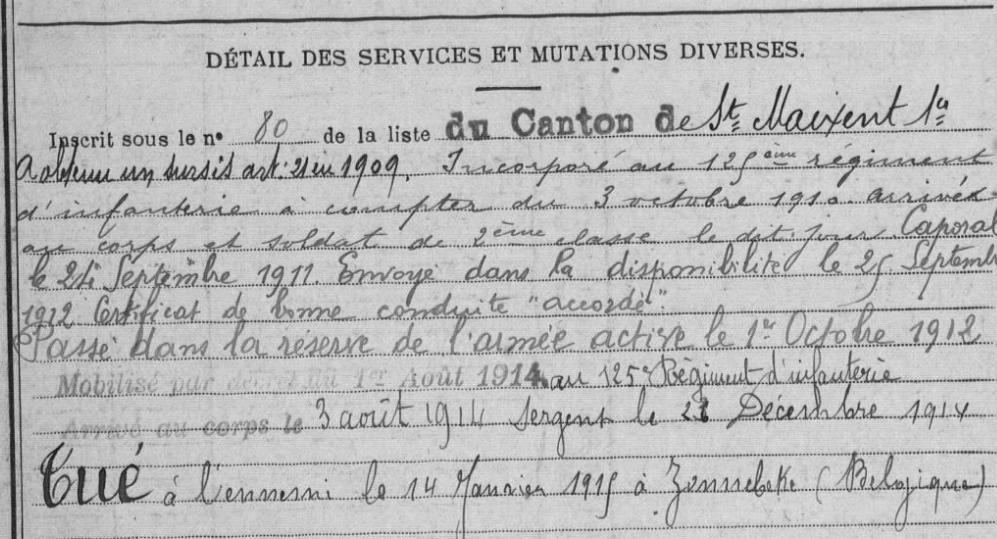 DÉTAIL DES SERVICES ET MUTATIONS DIVERSES.
Inscrit sous le n° 80 de la liste du Canton de St. Maixent 1e
A obtenu un sursis art: 21 en 1909. Incorporé au 125ème régiment
d'infanterie à compter du 3 octobre 1910. arrivé
au corps et soldat de 2ème classe le dit jour. Caporal
le 24 Septembre 1911. Envoyé dans la disponibilité le 25 Septembre
1912 Certificat de bonne conduite "accordé".
Passé dans la réserve de l'armée active le 1er Octobre 1912
Mobilisé par décret du 1er Août 1914. au 125e Régiment d'infanterie
Arrivé au corps le 3 août 1914 Sergent le Décembre 1914
Tué à l'ennemi le 14 Janvier 1915 à Zonnebeke (Belgique)